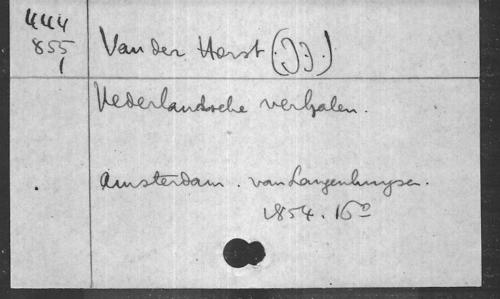 444
855
1
Van der Horst (J.J.)
Nederlandsche verhalen.
Amsterdam. van Langenhuysen.
1854. 16°